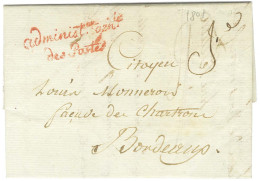 administ.on g.ale
des Postes
1802
Citoyen
Louis Monneron
façade des Chartrons
Bordeaux